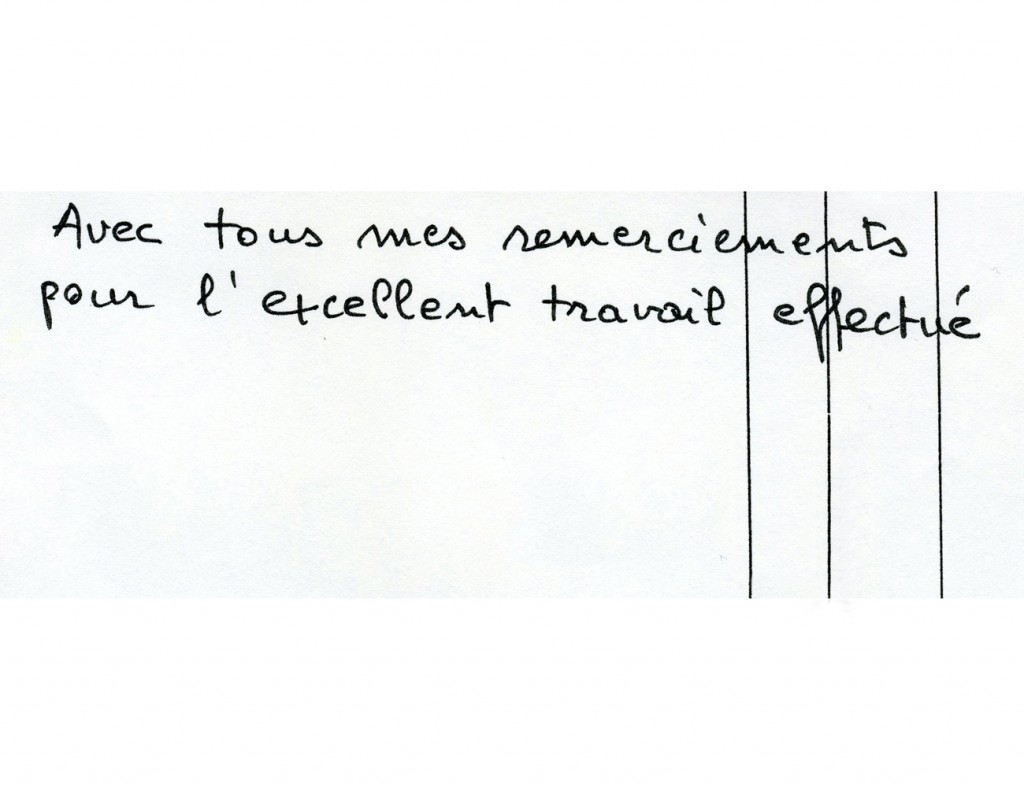 Avec tous mes remerciements
pour l'excellent travail effectué